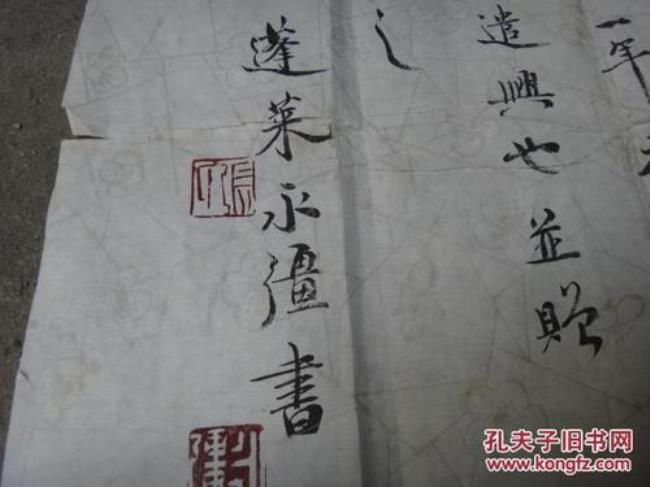 一年
遣興也並贈
之
蓬萊永彊書
孔夫子旧书网
www.kongfz.com